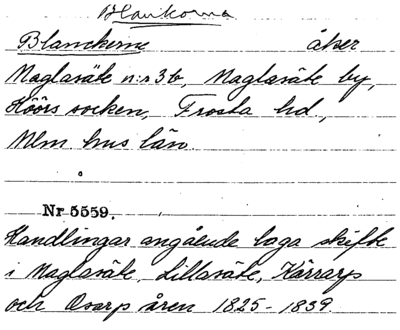 Blankorna
Blanckerne åker
Maglasäte n:r 3b, Maglasäte by,
Höörs socken, Frosta hd.,
Mlm hus län.
Nr 5559.
Handlingar angående laga skifte
i Maglasäte, Lillasäte, Kärrarp
och Osarp åren 1825-1839.